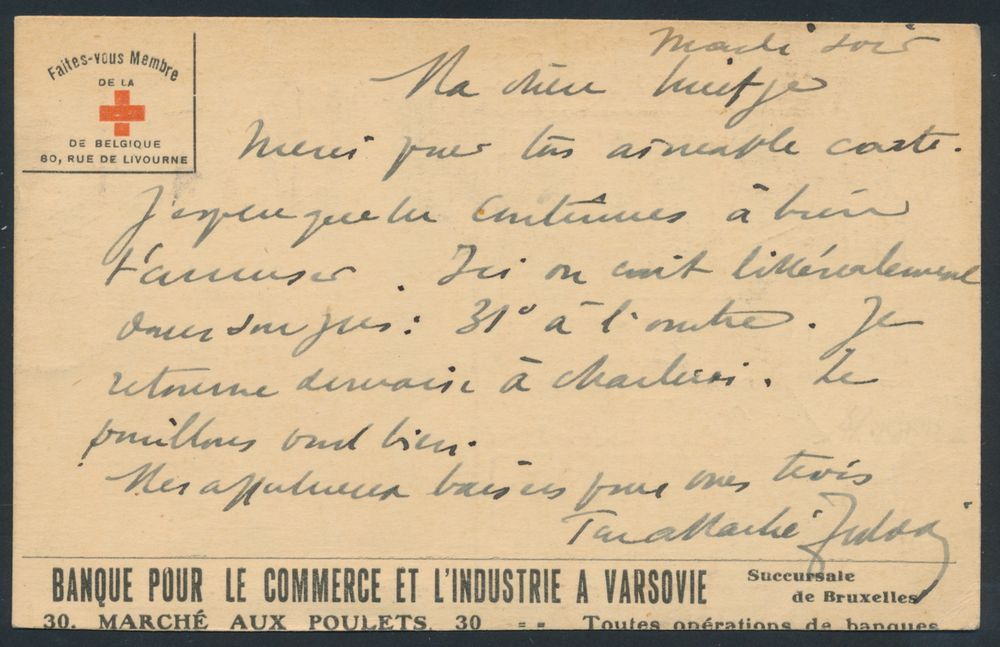 Faites-vous Membre
DE LA
DE BELGIQUE
80, RUE DE LIVOURNE
Mardi soir
Ma chère
Merci pour ton aimable carte.
J'espère que tu continues à bien
t'amuser. Ici on cuit littéralement
dans son jus : 31° à l'ombre. Je
retourne demain à Charleroi. Le
vont bien.
Mes affectueux baisers pour vous trois
Ton attaché
BANQUE POUR LE COMMERCE ET L'INDUSTRIE A VARSOVIE
Succursale
de Bruxelles
30. MARCHÉ AUX POULETS 30 == Toutes opérations de banques